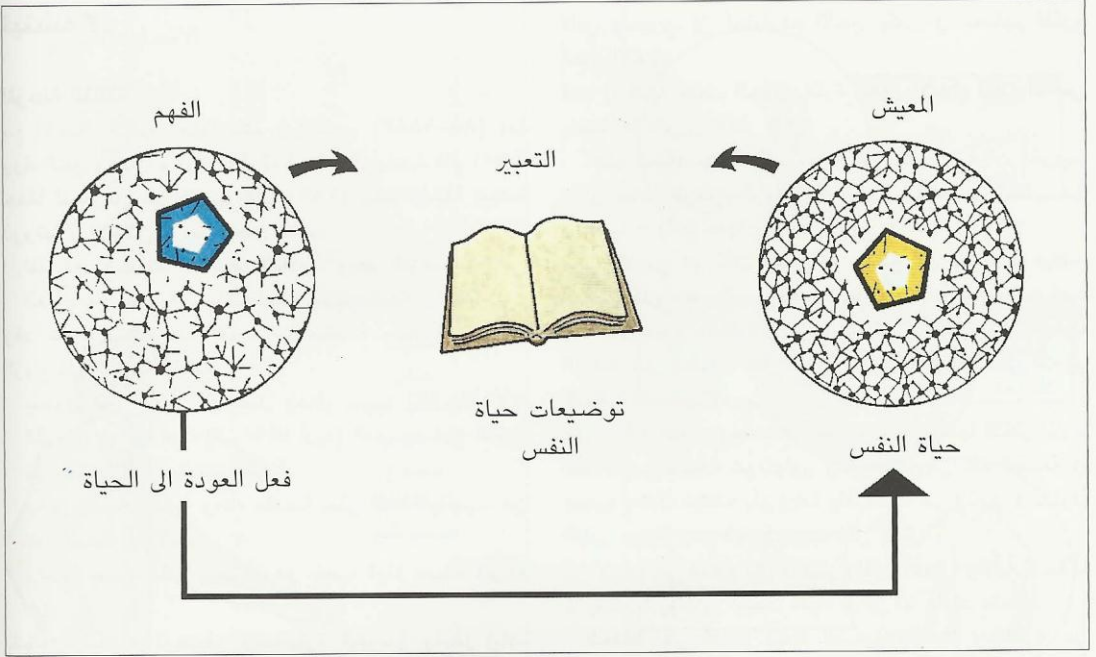 المعيش
التعبير
الفهم
حياة النفس
توضيعات حياة
النفس
فعل العودة الى الحياة